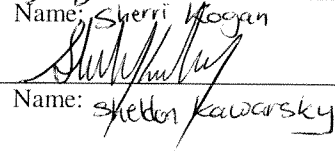 Name: Sherri Kogan
Name: Sheldon Kawarsky